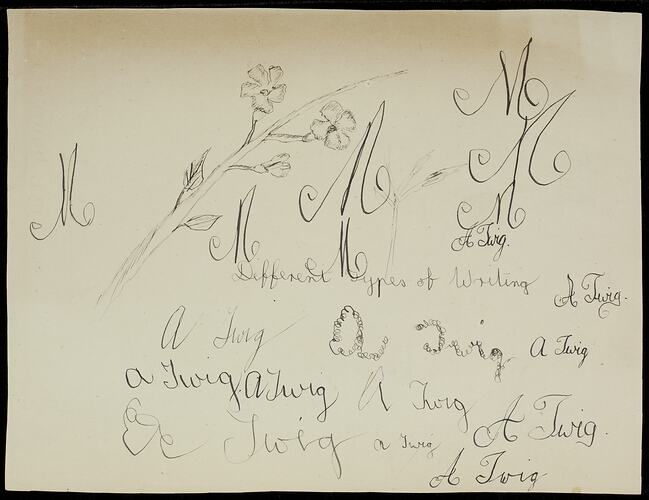 M
M
M
M
M
M
M
A Twig.
Different Types of Writing
A Twig.
A Twig
A Twig
A Twig
a Twig
A Twig
A Twig
A Twig
A Twig.
a Twig
A Twig